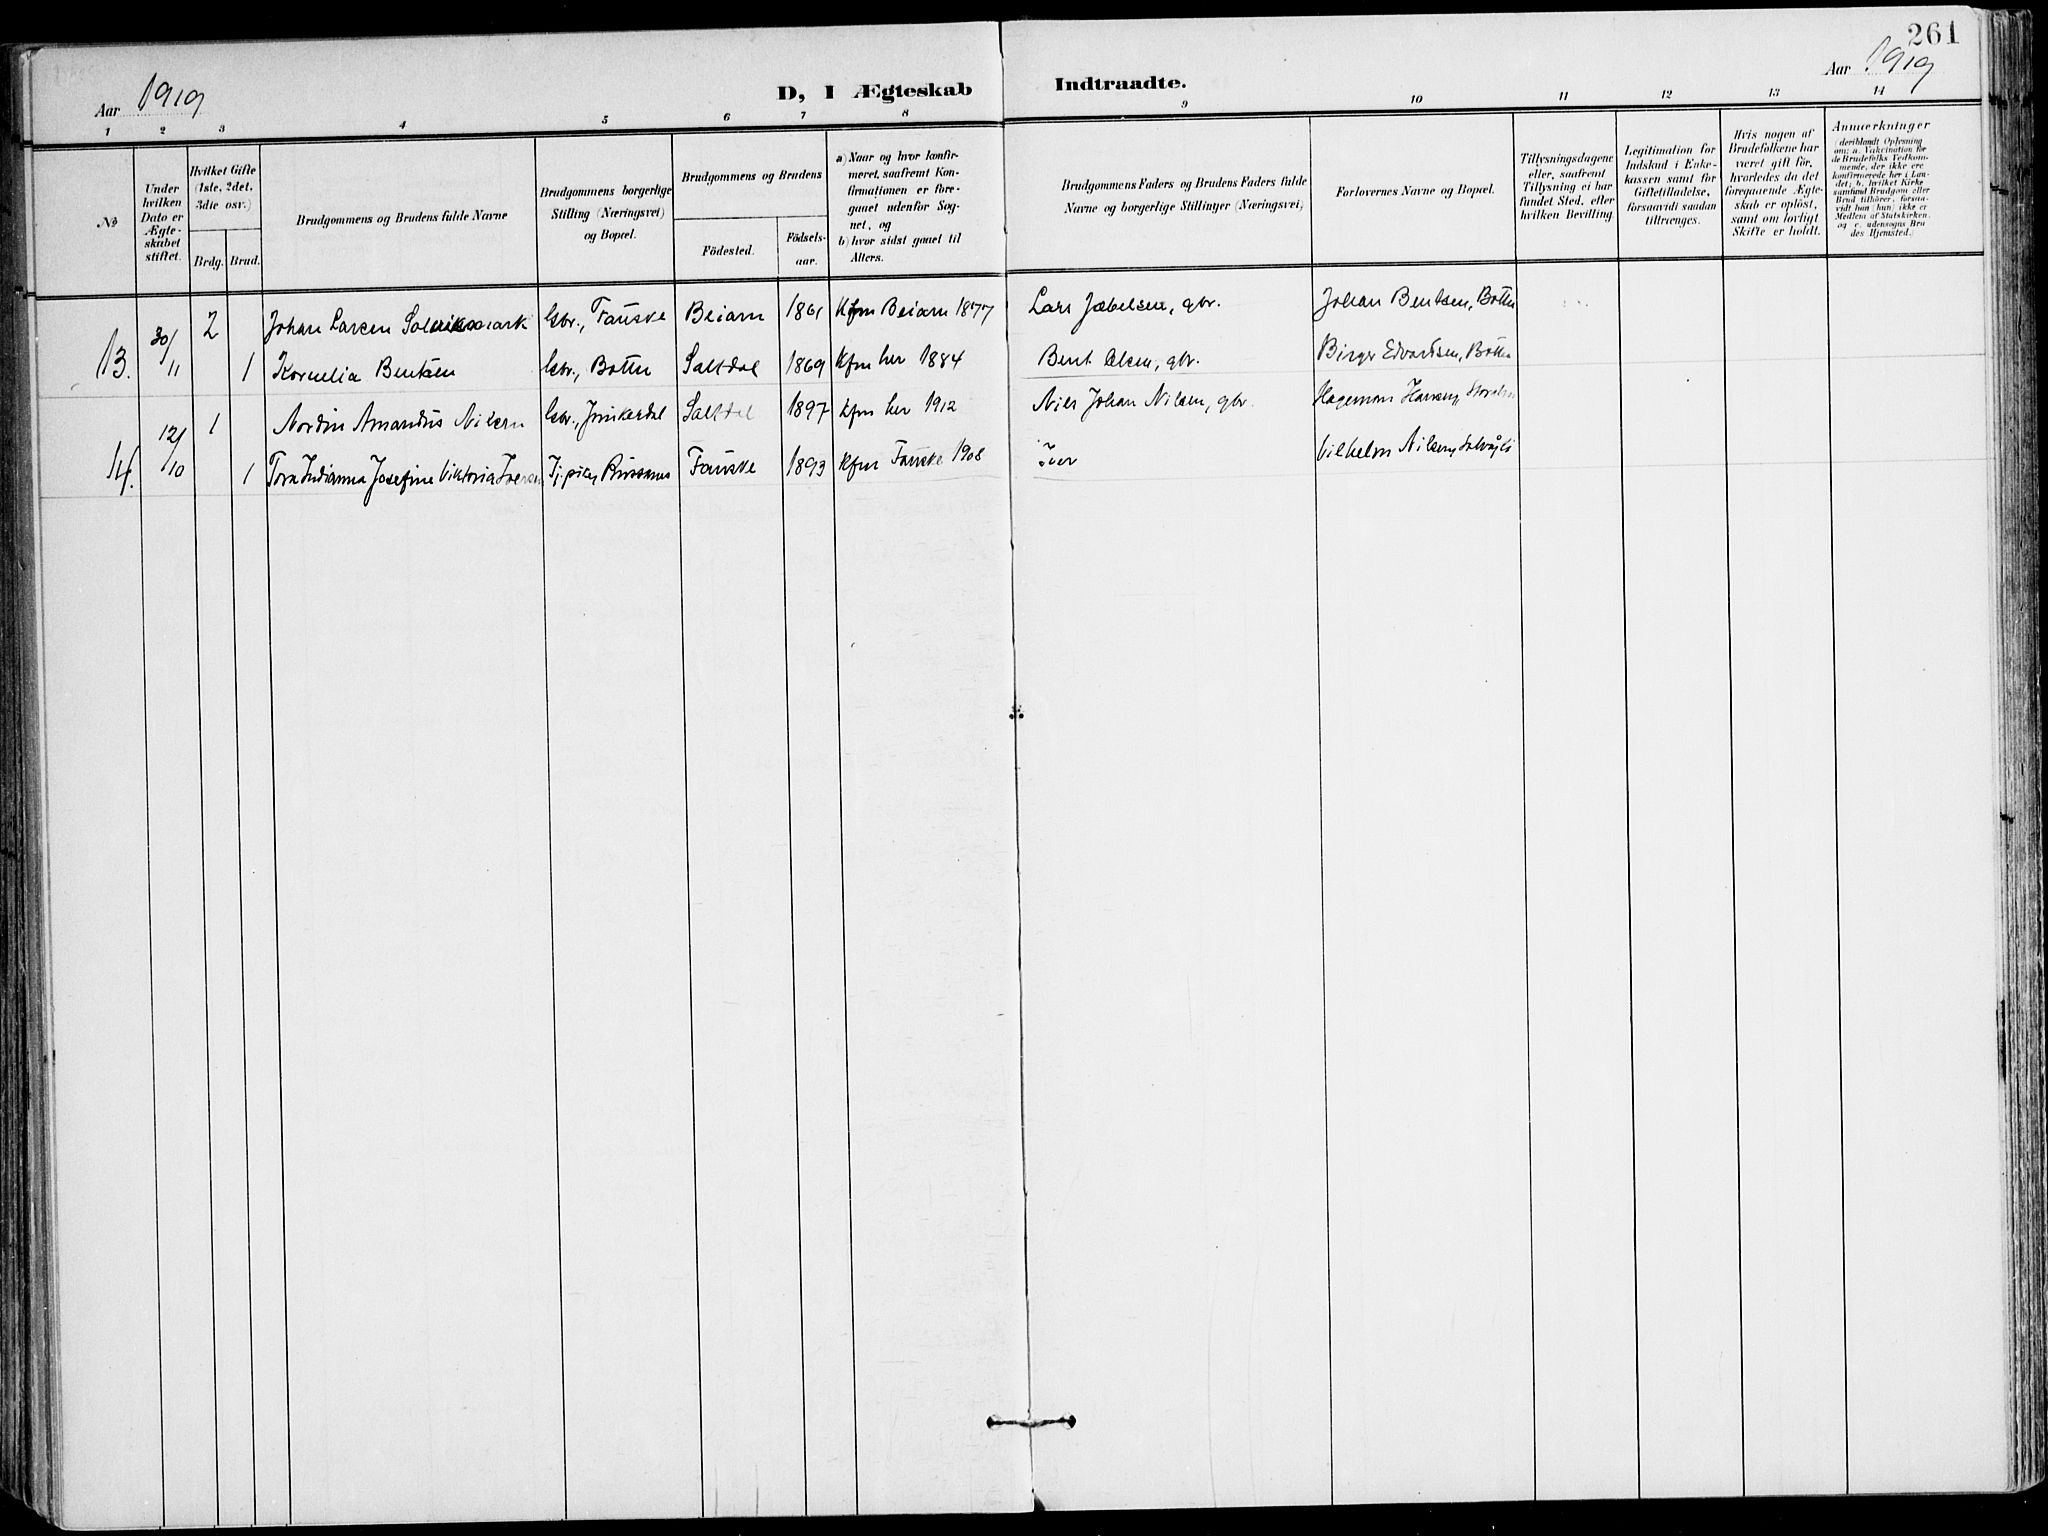 261
Aar 1919
D, I Ægteskab Indtraadte.
Aar 1919
1 2 3 4 5 6 7 8 9 10 11 12 13 14
No
Under hvilken Dato er Ægteskabet stiftet.
Hvilket Gifte (1ste, 2det, 3die osv.)
Brdg. Brud.
Brudgommens og Brudens fulde Navne
Brudgommens borgerlige Stilling (Næringsvei) og Bopæl.
Brudgommens og Brudens
Födested.
Födsels-aar.
a) Naar og hvor konfir-
meret, saafremt Kon-
firmationen er fore-
gaaet udenfor Sog-
net, og
b) hvor sidst gaaet til
Alters.
Brudgommens Faders og Brudens Faders fulde
Navne og borgerlige Stillinger (Næringsvei)
Forlovernes Navne og Bopæl.
Tillysningsdagene
eller, saafremt
Tillysning ei har
fundet Sted, efter
hvilken Bevilling.
Legitimation for
Indskud i Enke-
kassen samt for
Giftetilladelse,
forsaavidt saadan
tiltrænges.
Hvis nogen af
Brudefolkene har
været gift för,
hvorledes da det
foregaaende Ægte-
skab er oplöst,
samt om lovligt
Skifte er holdt.
Anmærkninger
(deriblandt Oplysning
om: a. Vakcination for
de Brudefolks Vedkom-
mende, der ikke ere
konfirmerede her i Lan-
det; b. hvilket Kirke
samfund Brudgom eller
Brud tilhörer, forsaa-
vidt han (hun) ikke er
Medlem af Statskirken.
og c. udensogns Bru
des Hjemsted.)
13. 30/11 2 Johan Larsen Gbr., Fauske Beiarn 1861 Kfm Beiarn 1877 Lars Jæbelsen, gbr. Johan Bentsen, Botten
1 Kornelia Bentsen Gbr., Botten Saltdal 1869 Kfm her 1884 Bent Olsen, gbr. Birger Edvardsen, Botten
14. 12/10 1 Nordin Amandus Nilsen Gbr., Junkerdal Saltdal 1897 Kfm her 1912 Nils Johan Nilsen, gbr. Hageman Hansen,
1 Tora Indianna Josefine Viktoria Iversen Tj.pike, Fauske 1893 Kfm Fauske 1908 Iver Vilhelm Nilsen,